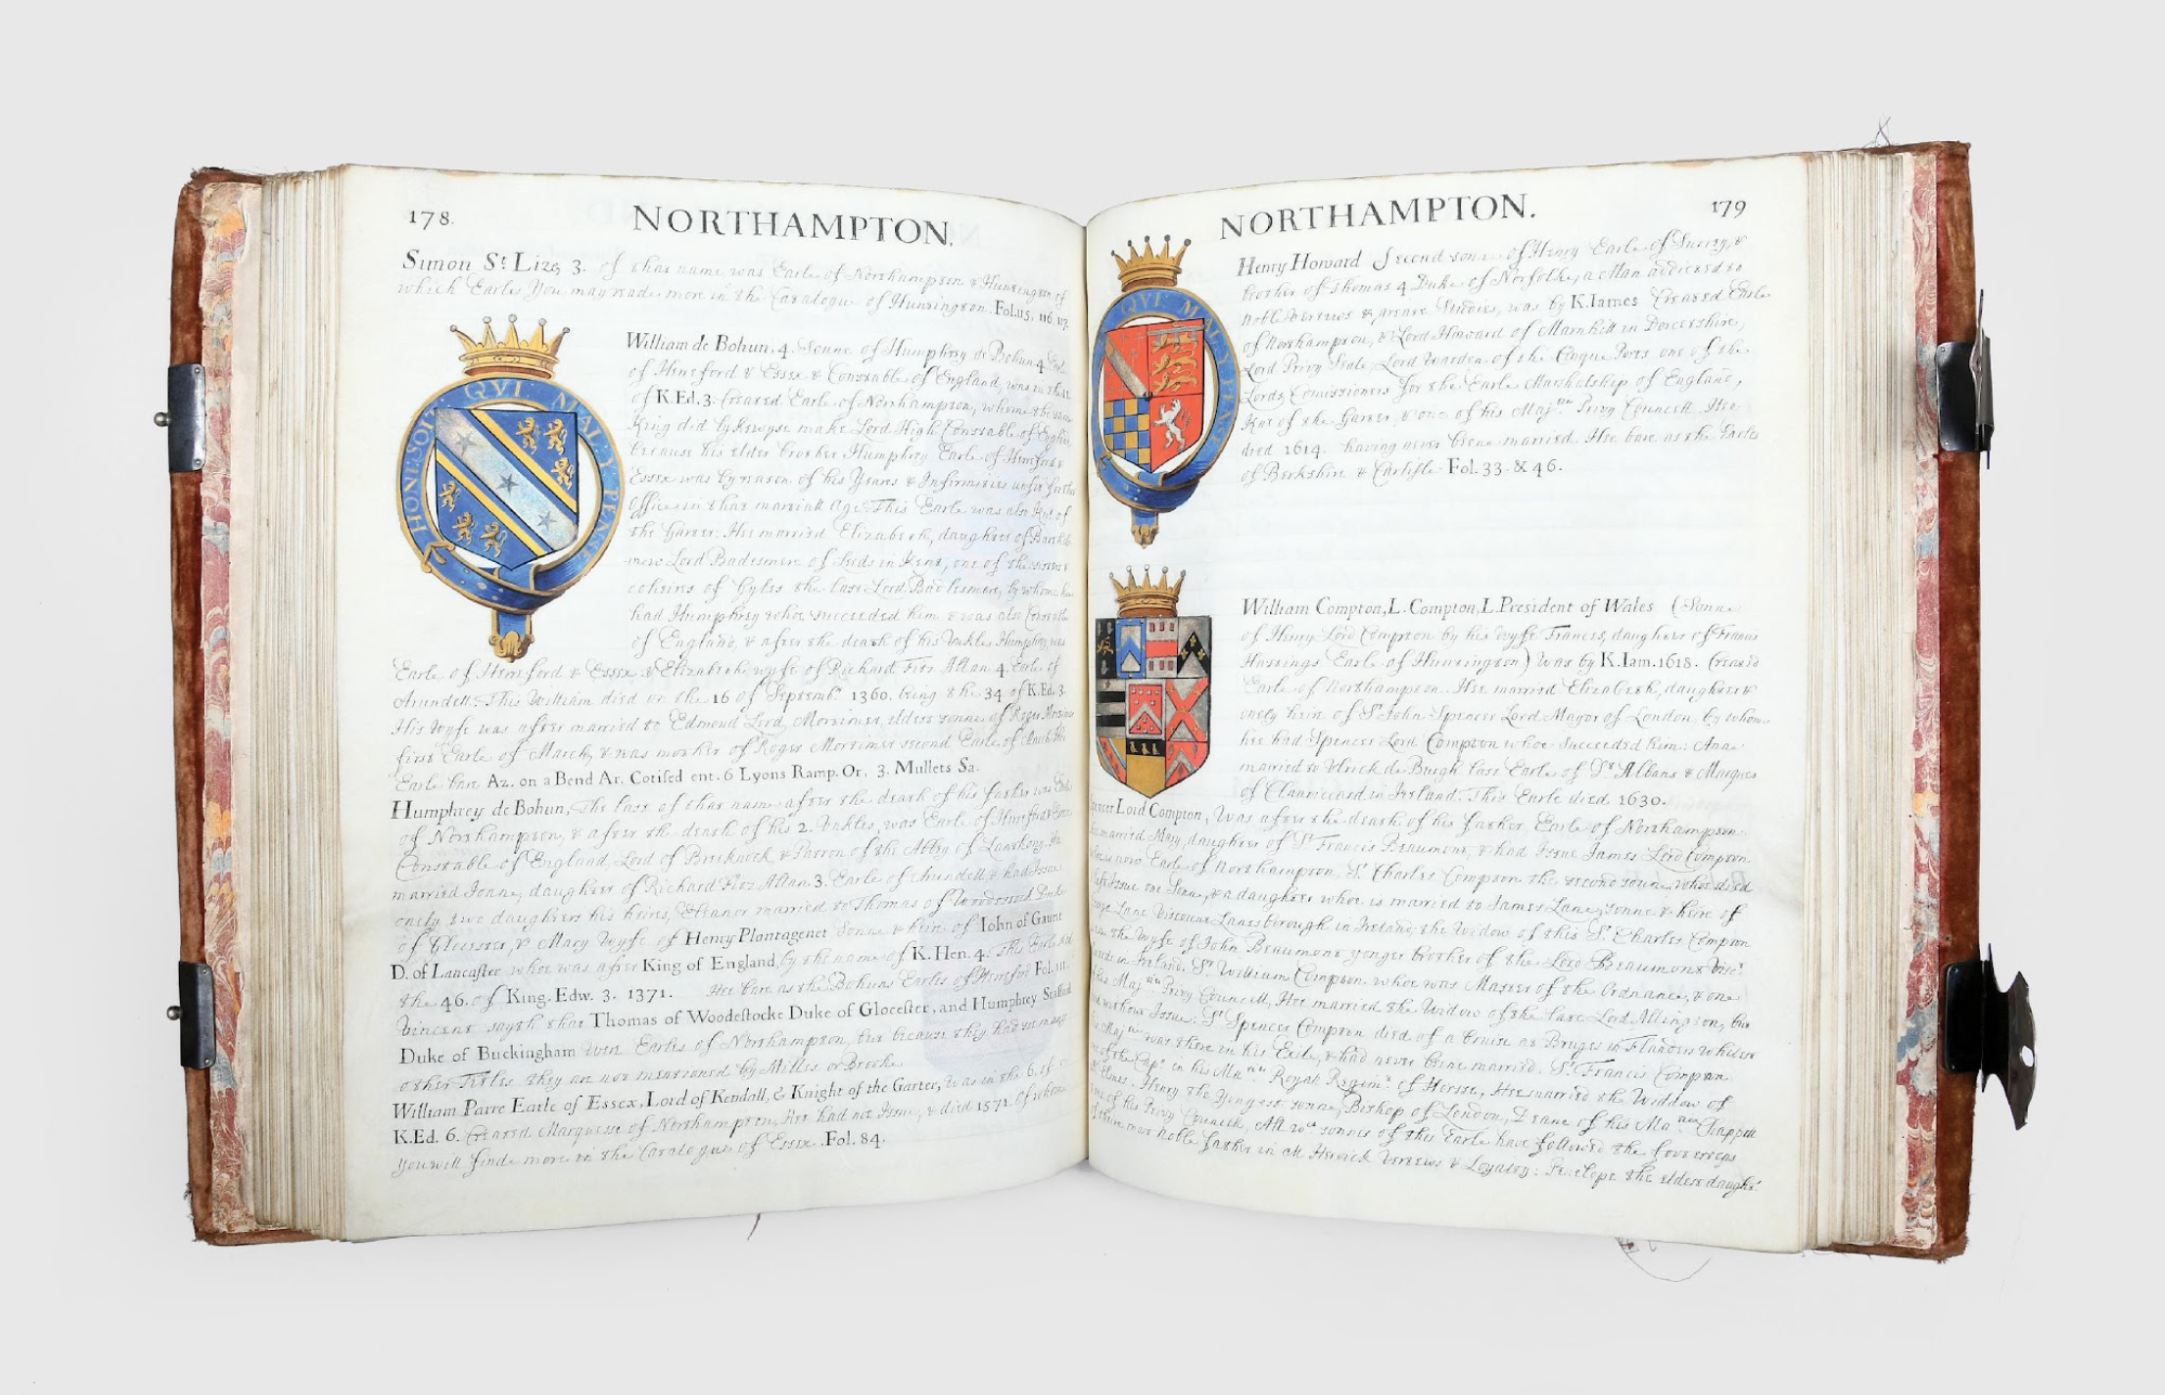 178.
NORTHAMPTON.
Simon St Lize, 3. of that name was Earle of Northampton & Huntington of
which Earles You may reade more in the Catalogue of Huntington. Fol. 115. 116. 117.
HONI SOIT QVI MAL Y PENSE
William de Bohun, 4. Sonne of Humphry de Bohun 4 Earle
of Hereford & Essex & Constable of England, was in the
of K.Ed.3. Created Earle of Northampton, whome the same
King did lykewyse make Lord High Constable of England
because his elder brother Humphrey Earle of Hereford &
Essex was by reason of his Years & Infirmities unfit for the
Office in that martiall Age. This Earle was also Knt of
the Garter: Hee married Elizabeth, daughter of Barthlo
mew Lord Badesmere of Leeds in Kent, one of the sisters &
coheires of Gyles the last Lord Badlesmere, by whome hee
had Humphrey whoe succeeded him & was also Constable
of England, & after the death of his Unkle Humphry, was
Earle of Hereford & Essex. & Elizabeth wyfe of Richard Fitz Allan 4. Earle of
Arundell. This William died on the 16 of Septemb. 1360. being the 34 of K.Ed.3.
His Wyfe was after married to Edmond Lord Mortimer, eldest sonne of Roger Mortimer
first Earle of March, & was mother of Roger Mortimer second Earle of March. This
Earle bare Az. on a Bend Ar. Cotised ent. 6 Lyons Ramp. Or, 3. Mullets Sa.
Humphrey de Bohun, the last of that name after the death of his father was Earle
of Northampton, & after the death of his 2. Unkles, was Earle of Hereford & Essex
Constable of England, Lord of Brecknock & Patron of the Abby of Lanthony. He
married Ioane, daughter of Richard Fitz Allan 3. Earle of Arundell, & had Issue
onely two daughters his heires, Eleanor married to Thomas of Woodstock Duke
of Glocester, & Mary Wyfe of Henry Plantagenet Sonne & heir of Iohn of Gaunt
D. of Lancaster whoe was after King of England, by the name of K. Hen. 4. This Earle died
the 46. of King. Edw. 3. 1371. Hee bare as the Bohuns Earles of Hereford Fol. 111.
Vincent sayth that Thomas of Woodestocke Duke of Glocester, and Humphrey Stafford
Duke of Buckingham were Earles of Northampton, but because they had
other Titles they are not mentioned by Milles or Brooke.
William Parre Earle of Essex, Lord of Kendall, & Knight of the Garter, was in the 6. of
K.Ed. 6. Created Marquesse of Northampton, Hee had not Issue, & died 1571. of whom
you will finde more in the Catalogue of Essex. Fol. 84.
NORTHAMPTON.
179
QVI MAL Y PENSE
Henry Howard Second sonne of Henry Earle of Surrey, &
brother of Thomas 4 Duke of Norfolke, a Man addicted to
noble Vertues & private Studies, was by K. Iames Created Earle
of Northampton, & Lord Howard of Marnhill in Dorcetshire,
Lord Privy Seale, Lord Warden of the Cinque Ports one of the
Lords Comissioners for the Earle Marshalship of England,
Knt of the Garter, & one of his Maj.tie Privy Councell. Hee
died 1614. having never beene married. Hee bare as the Earles
of Berkshire & Carlisle Fol. 33. & 46.
William Compton, L. Compton, L. President of Wales (Sonne
of Henry Lord Compton by his Wyfe Frances, daughter of Francis
Hastings Earle of Huntington) was by K. Iam. 1618. Created
Earle of Northampton. Hee married Elizabeth, daughter &
onely heire of Sr. John Spencer Lord Mayor of London, by whome
hee had Spencer Lord Compton whoe Succeeded him: Ann
married to Ulrick de Burgh last Earle of St Albans & Marques
of Clanriccard in Ireland. This Earle died 1630.
Lord Compton, Was after the death of his father Earle of Northampton
married Mary, daughter of Sr Francis Beaumont, & had Issue James Lord Compton
now Earle of Northampton, Sr. Charles Compton the second sonne, who died
Issue one Sonne, & a daughter whoe is married to James Lane, sonne & heire of
Lane Viscount Lanesborough in Ireland, the Widow of this Sr. Charles Compton
the Wyfe of John Beaumont yonger brother of the Lord Beaumont Visc.t
in Ireland. Sr. William Compton. whoe was Master of the Ordnance, & one
Maj.tie Privy Councell, Hee married the Widow of the late Lord Allington, but
without Issue. Sr Spencer Compton died of a bruise at Bruges in Flanders whilest
Maj.tie was there in his Exile, & had never beene married. Sr. Francis Compton
Capt. in his Ma.ties Royal Regim.t of Horsse, Hee married the Widdow of
Henry the Yongest sonne, Bishop of London, Deane of his Ma.ties Chappell
of his Privy Councell, All sonnes of this Earle have followed the footesteps
most noble father in all Heroick Vertues & Loyalty: Penelope the eldest daught.